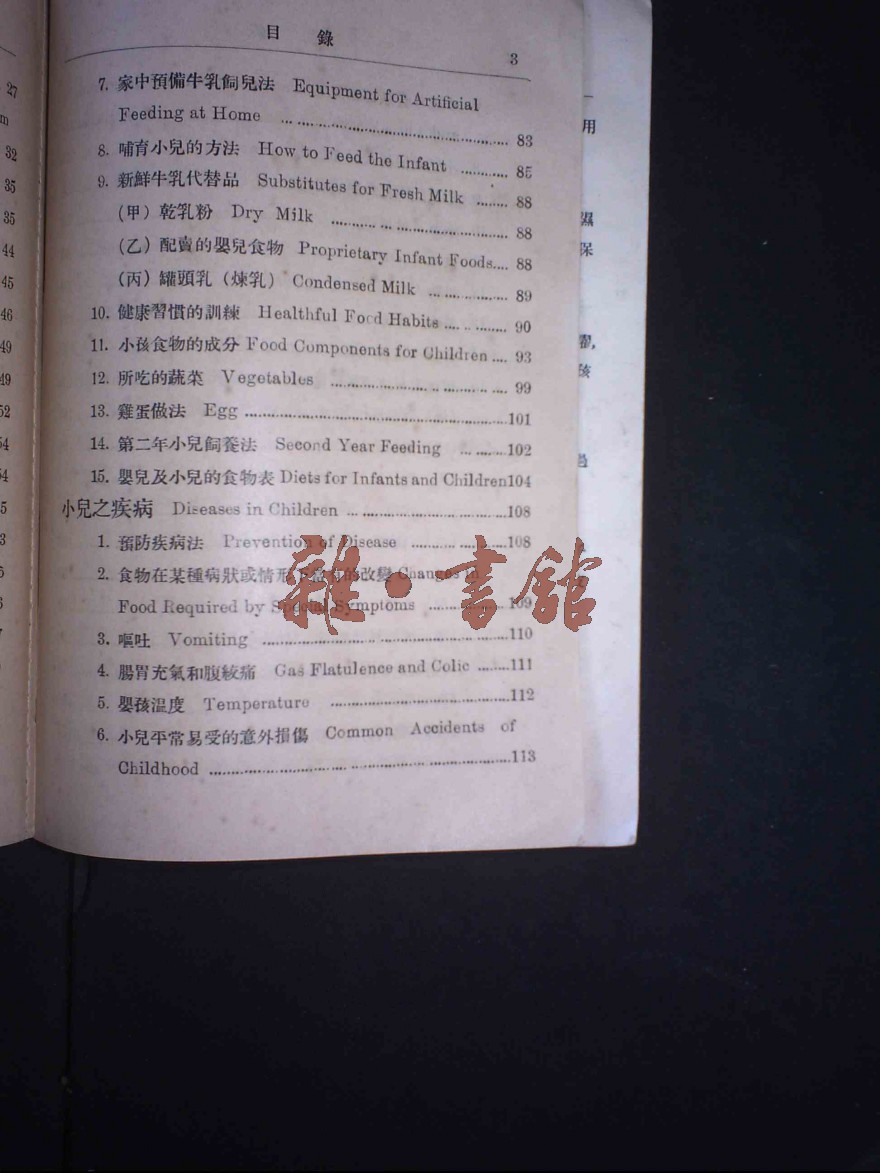 目錄 3
7. 家中預備牛乳飼兒法 Equipment for Artificial
Feeding at Home ........ 83
8. 哺育小兒的方法 How to Feed the Infant ........ 85
9. 新鮮牛乳代替品 Substitutes for Fresh Milk ........ 88
(甲) 乾乳粉 Dry Milk ........ 88
(乙) 配賣的嬰兒食物 Proprietary Infant Foods.... 88
(丙) 罐頭乳 (煉乳) Condensed Milk ........ 89
10. 健康習慣的訓練 Healthful Food Habits ........ 90
11. 小孩食物的成分 Food Components for Children .... 93
12. 所吃的蔬菜 Vegetables ........ 99
13. 雞蛋做法 Egg ........101
14. 第二年小兒飼養法 Second Year Feeding ........102
15. 嬰兒及小兒的食物表 Diets for Infants and Children104
小兒之疾病 Diseases in Children ........108
1. 預防疾病法 Prevention of Disease ........108
2. 食物在某種病狀或情形下當有的改變 Changes in
Food Required by Special Symptoms ........109
3. 嘔吐 Vomiting ........110
4. 腸胃充氣和腹絞痛 Gas Flatulence and Colic ........111
5. 嬰孩溫度 Temperature ........112
6. 小兒平常易受的意外損傷 Common Accidents of
Childhood ........113
雜·書館
27
32
35
35
44
45
46
49
49
52
54
54
用
保
孩